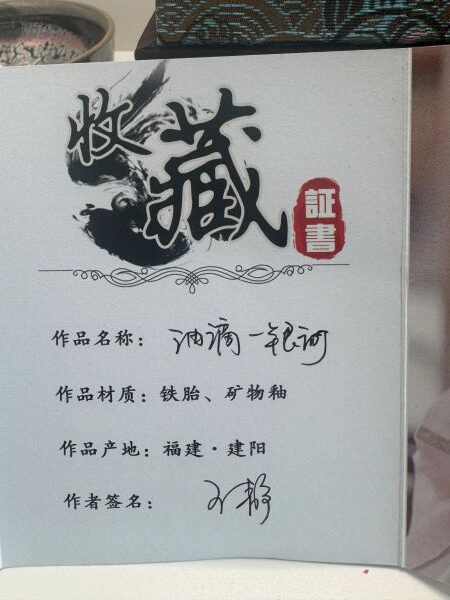 收藏
証書
作品名称：油滴一银河
作品材质：铁胎、矿物釉
作品产地：福建·建阳
作者签名：